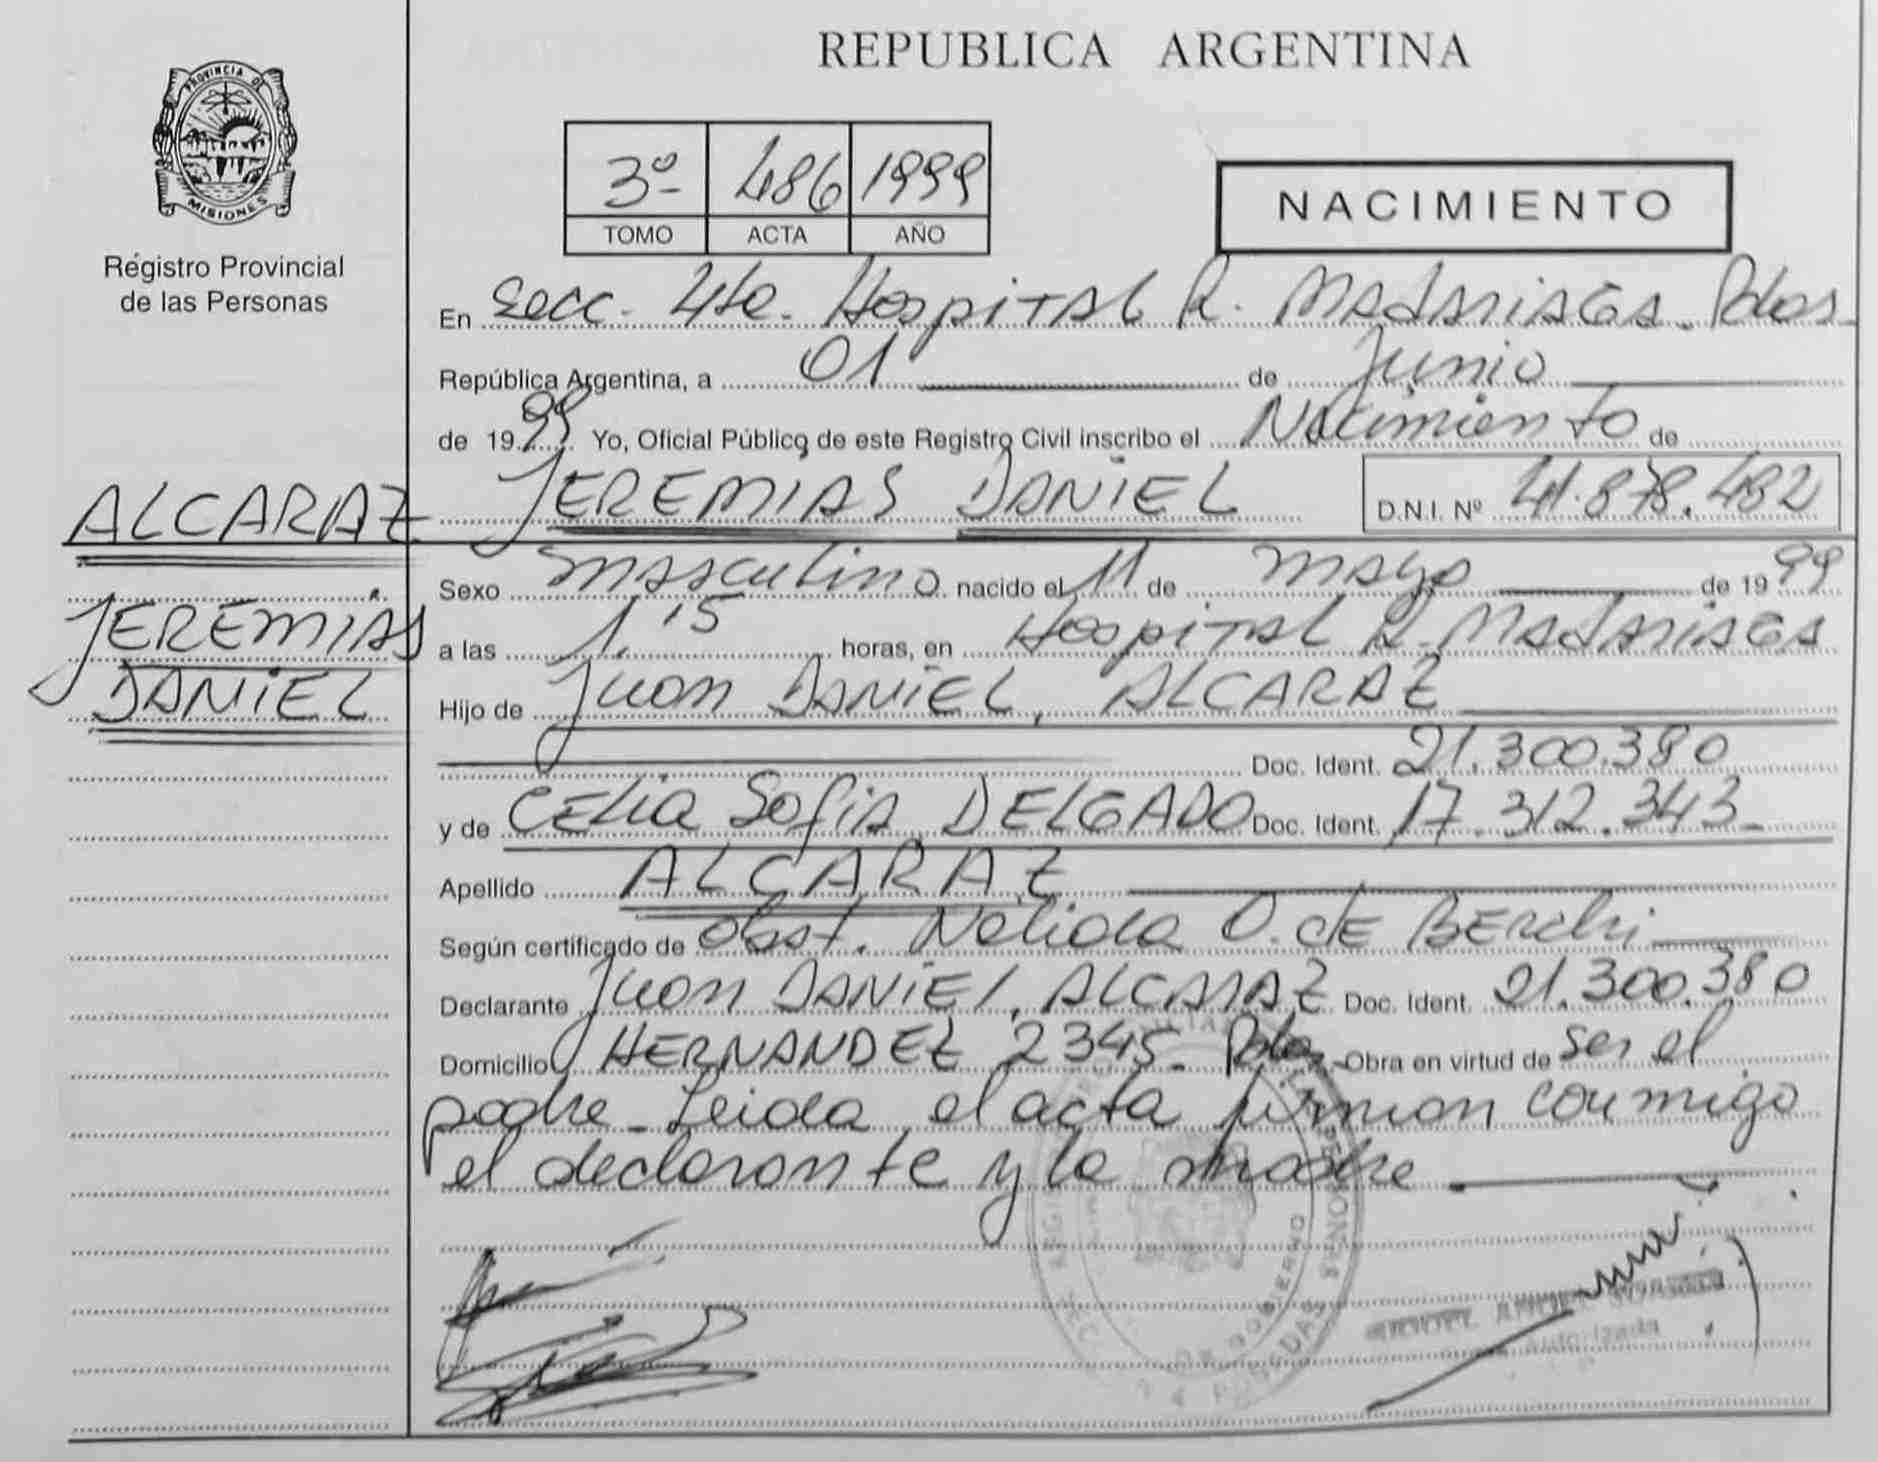 REPUBLICA ARGENTINA
PROVINCIA DE
MISIONES
Régistro Provincial
de las Personas
3º 486 1999
TOMO ACTA AÑO
NACIMIENTO
En Secc. 4ta. Hospital R. Madariaga. Pdas.
República Argentina, a 01 de Junio
de 1999 Yo, Oficial Público de este Registro Civil inscribo el Nacimiento de
JEREMIAS DANIEL D.N.I. Nº 41.878.482
ALCARAZ
JEREMIAS
DANIEL
Sexo masculino nacido el 11 de mayo de 1999
a las 1.15 horas, en Hospital R. Madariaga
Hijo de Juan DANIEL, ALCARAZ
Doc. Ident. 21.300.380
y de CELIA SOFIA, DELGADO Doc. Ident. 17.312.343
Apellido ALCARAZ
Según certificado de Obst. Nelida O. de Berchi
Declarante Juan DANIEL, ALCARAZ Doc. Ident. 21.300.380
Domicilio HERNANDEZ 2345 - Pdas. Obra en virtud de ser el
padre - Leida el acta firman conmigo
el declarante y la madre
ANGEL
Autorizada